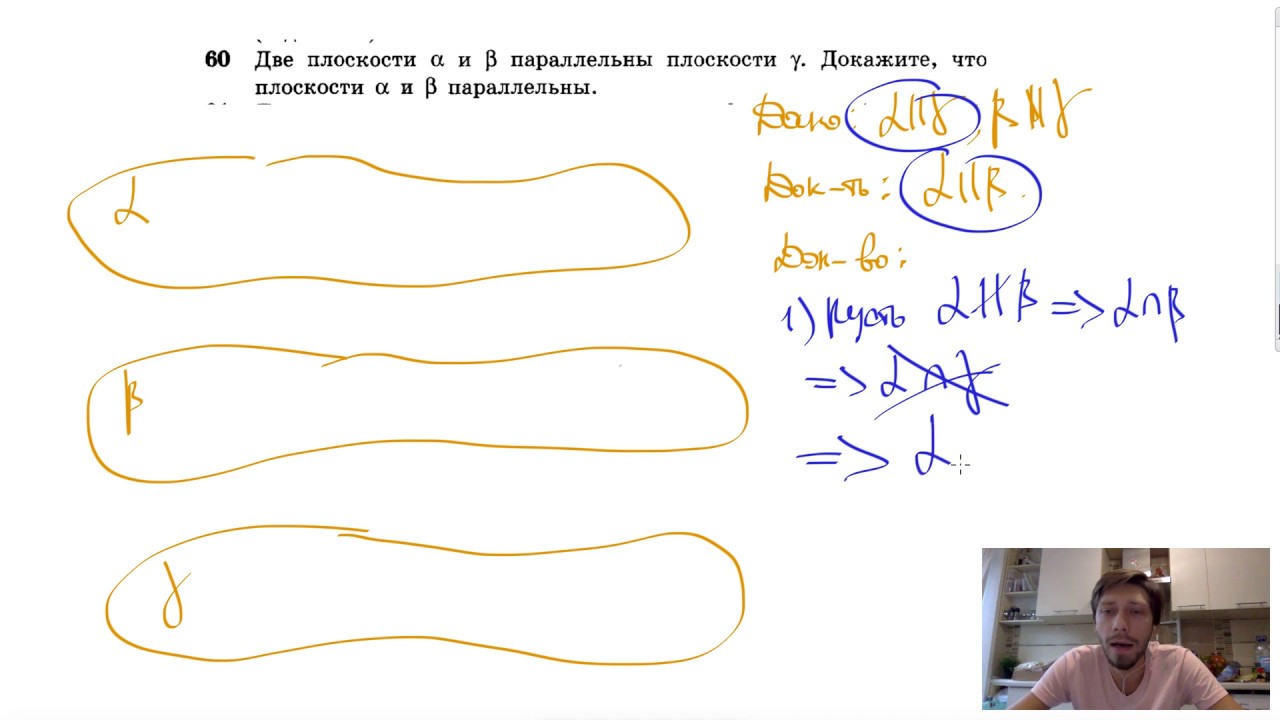 60 Две плоскости α и β параллельны плоскости γ. Докажите, что
плоскости α и β параллельны.
Дано: α || γ, β || γ
Док-ть: α || β.
Док-во:
1) Пусть α ∦ β => α ∩ β
=> α ∩ γ
=> α
α
β
γ